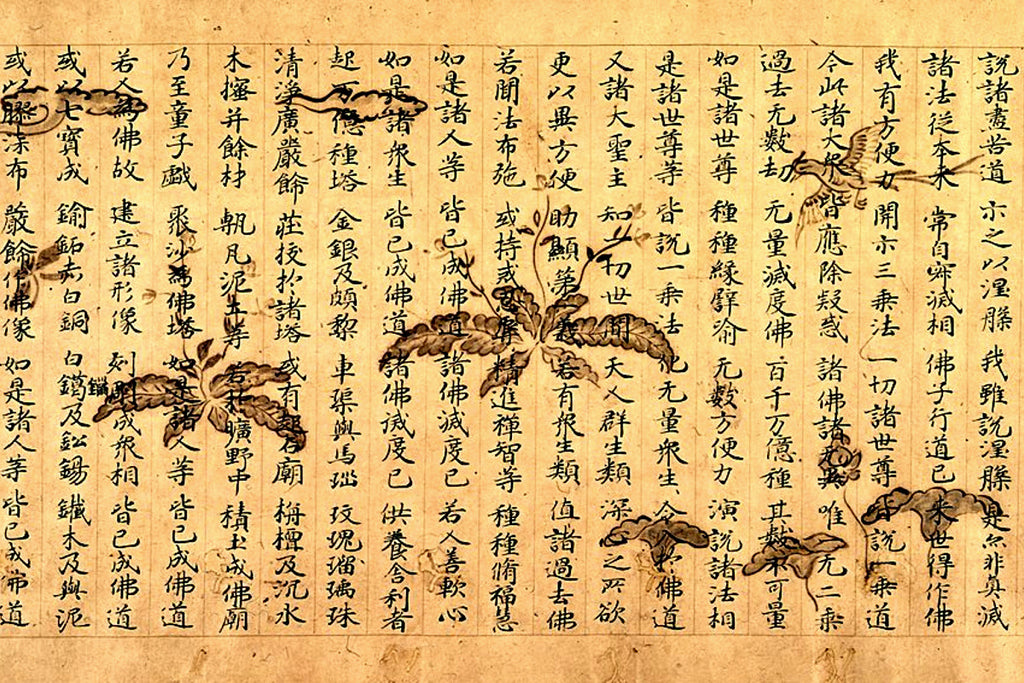 說諸盡苦道 示之以涅槃 我雖說涅槃 是亦非真滅
諸法從本來 常自寂滅相 佛子行道已 來世得作佛
我有方便力 開示三乘法 一切諸世尊 皆說一乘道
今此諸大眾 皆應除疑惑 諸佛語無異 唯一无二乘
過去无數劫 无量滅度佛 百千万億種 其數不可量
如是諸世尊 種種緣譬喻 无數方便力 演說諸法相
是諸世尊等 皆說一乘法 化无量眾生 令入於佛道
又諸大聖主 知一切世間 天人群生類 深心之所欲
更以異方便 助顯第一義 若有眾生類 值諸過去佛
若聞法布施 或持戒忍辱 精進禪智等 種種脩福慧
如是諸人等 皆已成佛道 諸佛滅度已 若人善軟心
如是諸眾生 皆已成佛道 諸佛滅度已 供養舍利者
起万億種塔 金銀及頗黎 車渠與馬瑙 玫瑰瑠璃珠
清淨廣嚴飾 莊挍於諸塔 或有起石廟 栴檀及沉水
木櫁并餘材 甎瓦泥土等 若於曠野中 積土成佛廟
乃至童子戲 聚沙為佛塔 如是諸人等 皆已成佛道
若人為佛故 建立諸形像 刻彫成眾相 皆已成佛道
或以七寶成 鍮鉐赤白銅 白鑞及鉛錫 鐵木及與泥
或以膠漆布 嚴飾作佛像 如是諸人等 皆已成佛道